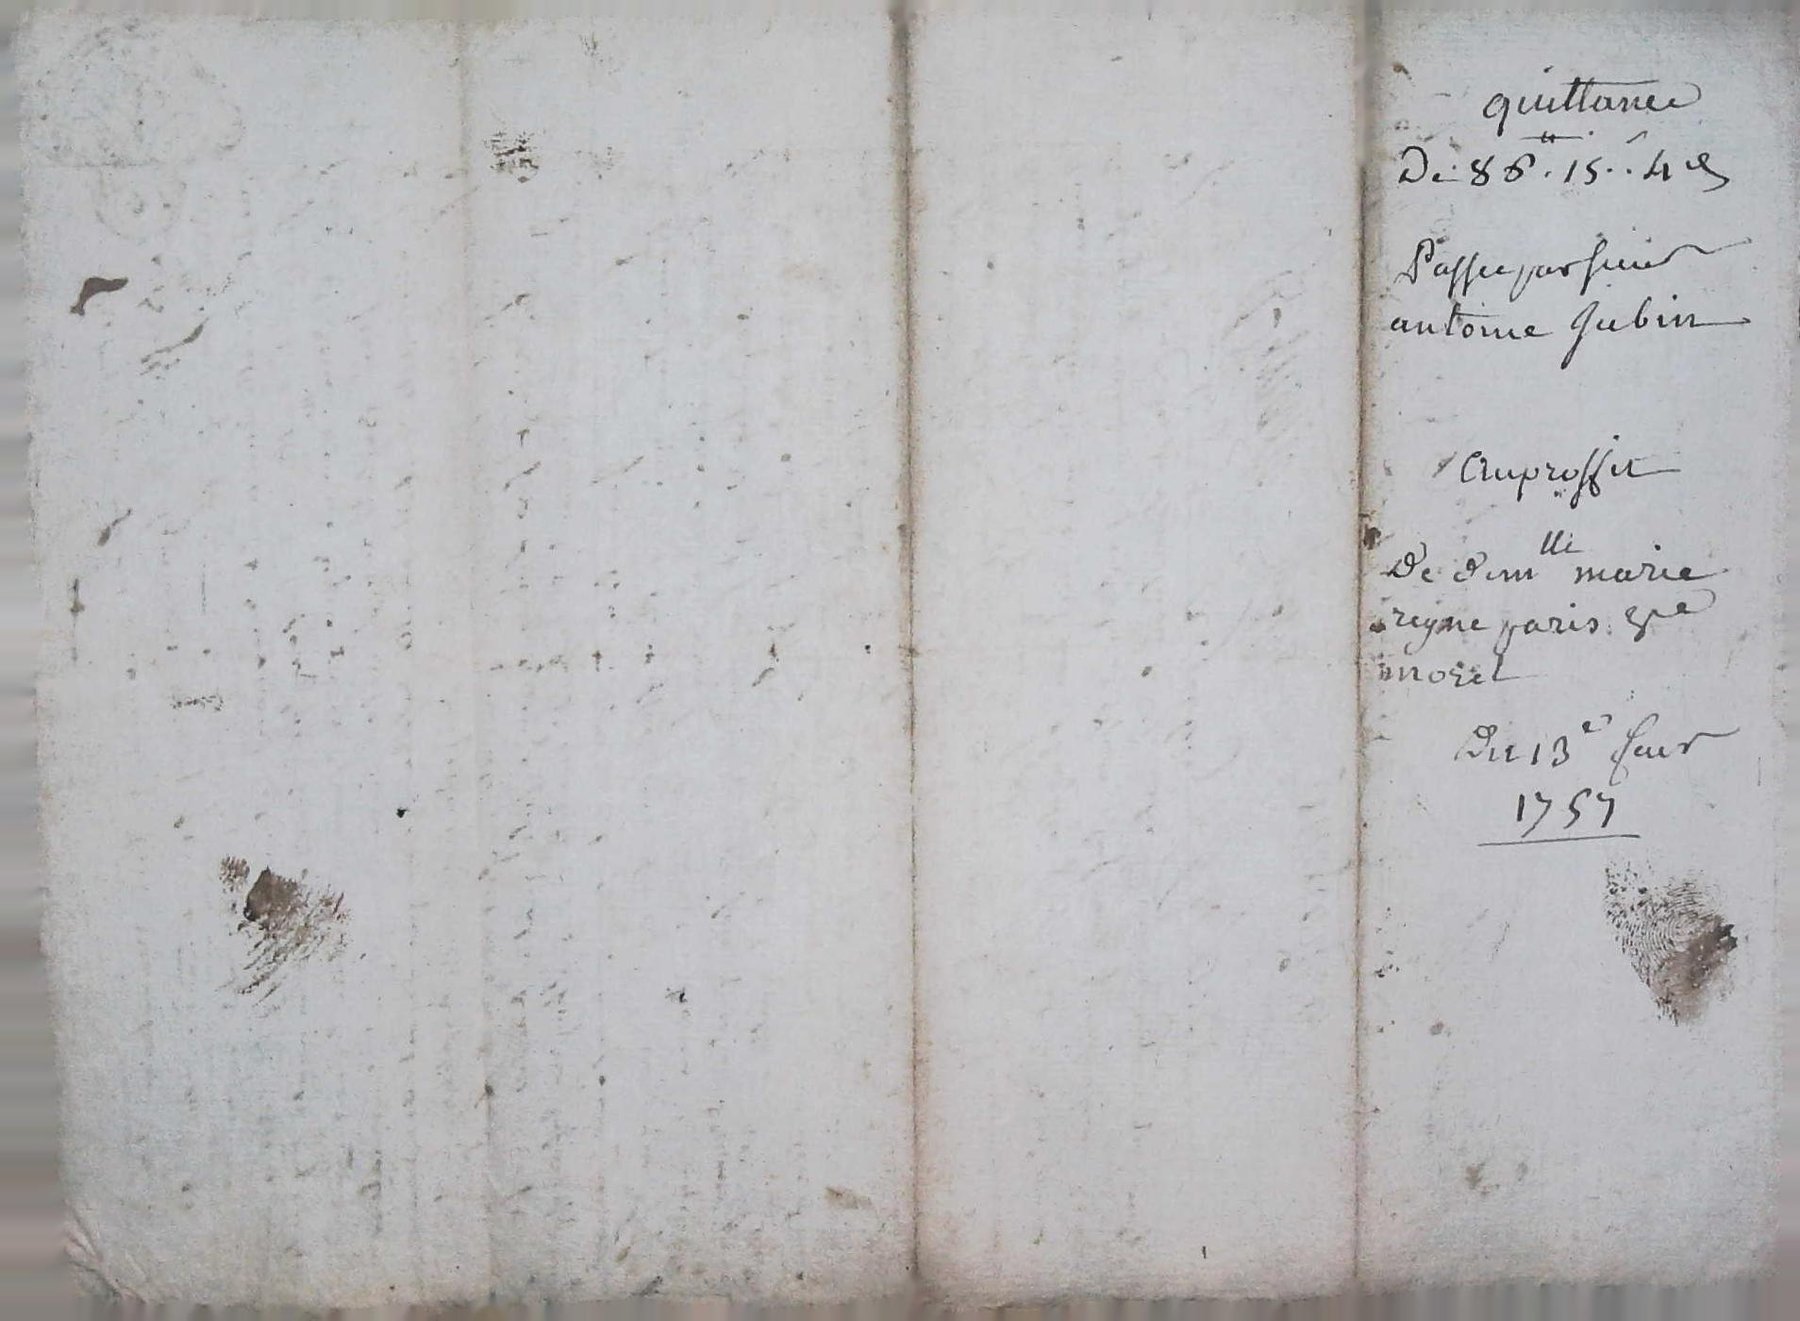 quittance
De 86 ₶ . 15 . . 4 d
Passee par sieur
antoine Jubin
Auproffit
De dem lle marie
reyne paris
morel
Du 13e
1757